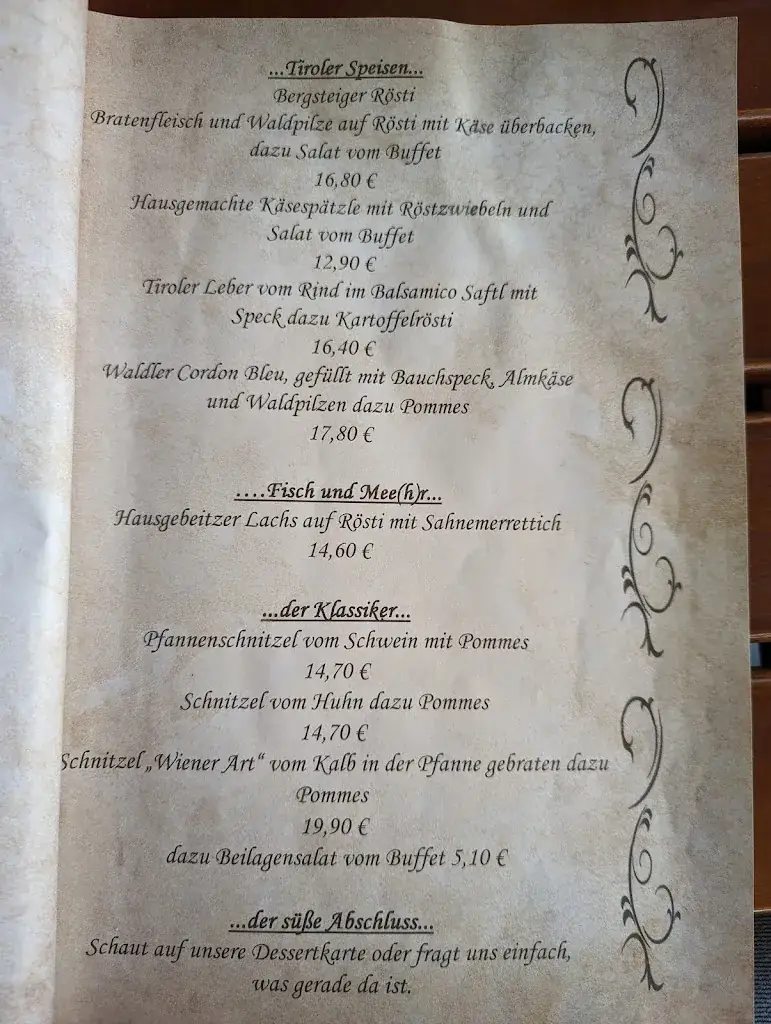 ...Tiroler Speisen...
Bergsteiger Rösti
Bratenfleisch und Waldpilze auf Rösti mit Käse überbacken,
dazu Salat vom Buffet
16,80 €
Hausgemachte Käsespätzle mit Röstzwiebeln und
Salat vom Buffet
12,90 €
Tiroler Leber vom Rind im Balsamico Saftl mit
Speck dazu Kartoffelrösti
16,40 €
Waldler Cordon Bleu, gefüllt mit Bauchspeck, Almkäse
und Waldpilzen dazu Pommes
17,80 €
....Fisch und Mee(h)r...
Hausgebeitzer Lachs auf Rösti mit Sahnemerrettich
14,60 €
...der Klassiker...
Pfannenschnitzel vom Schwein mit Pommes
14,70 €
Schnitzel vom Huhn dazu Pommes
14,70 €
Schnitzel „Wiener Art“ vom Kalb in der Pfanne gebraten dazu
Pommes
19,90 €
dazu Beilagensalat vom Buffet 5,10 €
...der süße Abschluss...
Schaut auf unsere Dessertkarte oder fragt uns einfach,
was gerade da ist.